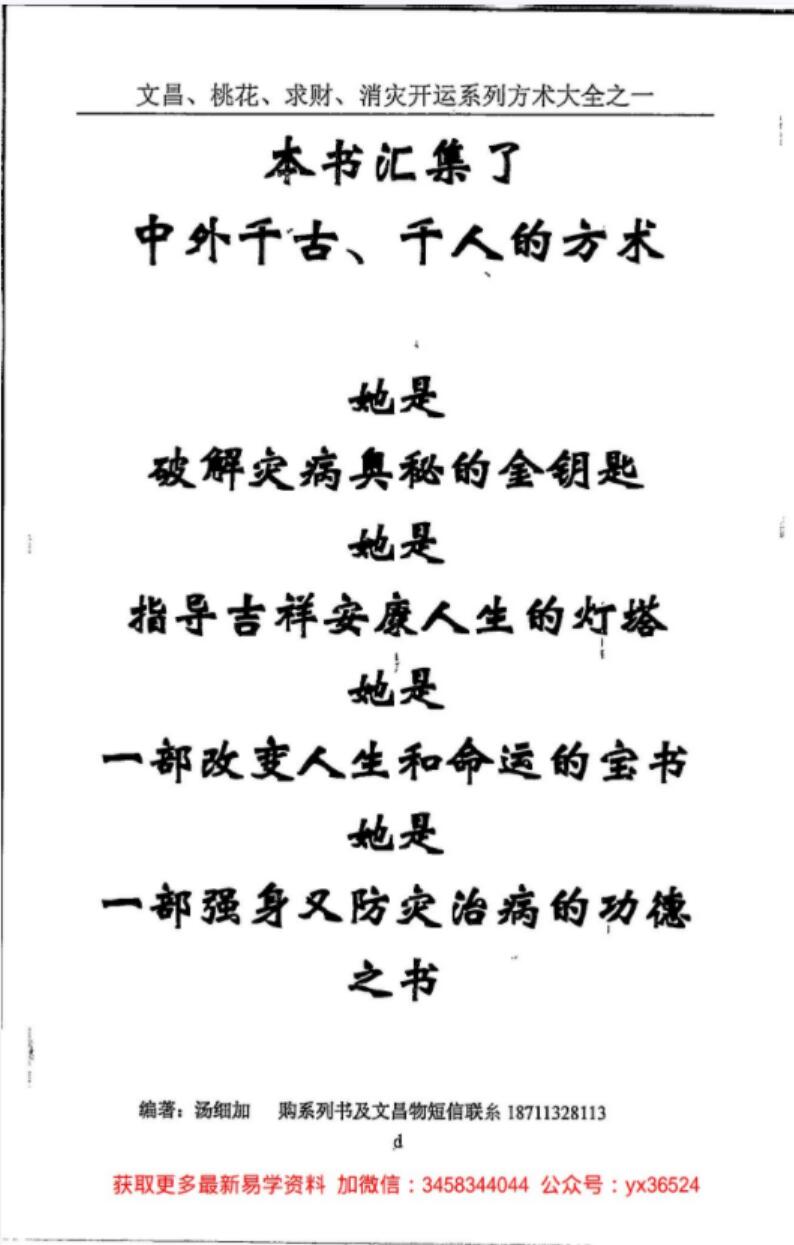 文昌、桃花、求财、消灾开运系列方术大全之一
本书汇集了
中外千古、千人的方术
她是
破解灾病奥秘的金钥匙
她是
指导吉祥安康人生的灯塔
她是
一部改变人生和命运的宝书
她是
一部强身又防灾治病的功德
之书
编著：汤细加 购系列书及文昌物短信联系 18711328113
d
获取更多最新易学资料 加微信：3458344044 公众号：yx36524